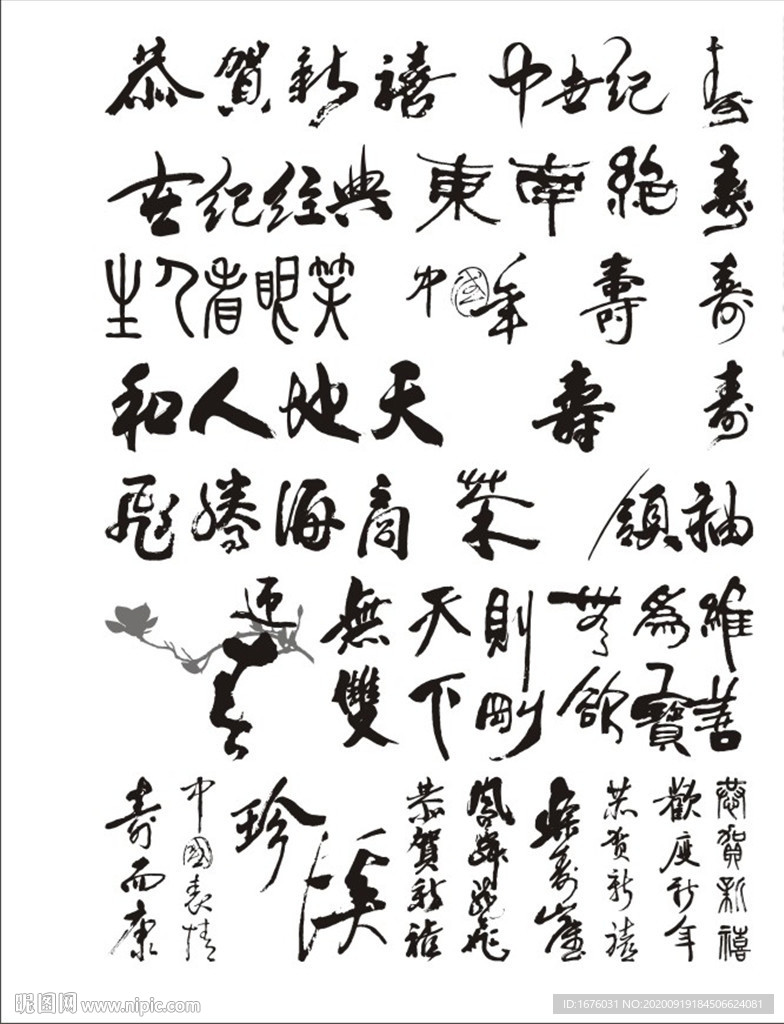 恭賀新禧 中世纪 寿
世纪经典 東南絶 壽
生人看眼笑 中國年 壽 寿
和人地天 壽 寿
飛騰海商 領袖
迎春
無雙
天下
則剛
無欲
為寶
維善
寿而康
中國表情
珍溪
恭賀新禧
鳳舞龍飛
恭贺新禧
歡度新年
恭賀新禧
昵图网 www.nipic.com
ID:1676031 NO:20200919184506624081